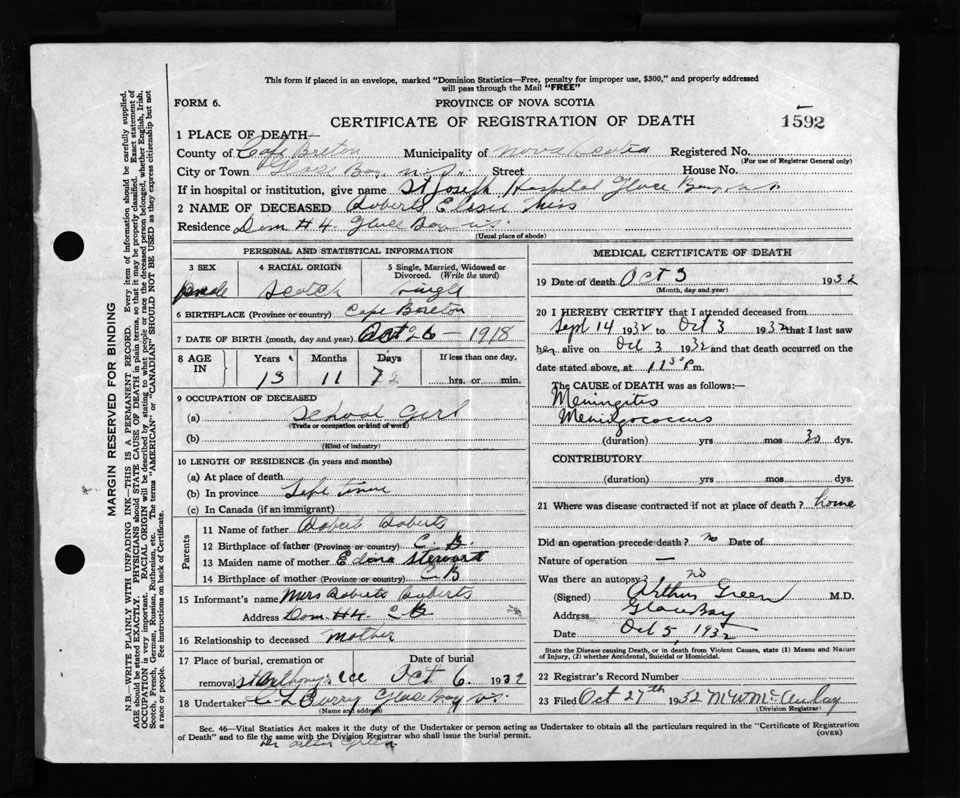 This form if placed in an envelope, marked "Dominion Statistics—Free, penalty for improper use, $300," and properly addressed
will pass through the Mail "FREE"
FORM 6.
PROVINCE OF NOVA SCOTIA
CERTIFICATE OF REGISTRATION OF DEATH
1592
1 PLACE OF DEATH—
County of Cape Breton Municipality of Nova Scotia Registered No.
(For use of Registrar General only)
City or Town Glace Bay N.S. Street House No.
If in hospital or institution, give name St Joseph Hospital Glace Bay N.S.
2 NAME OF DECEASED Roberts Miss
Residence Dom #4 Glace Bay N.S.
(Usual place of abode)
PERSONAL AND STATISTICAL INFORMATION
3 SEX 4 RACIAL ORIGIN 5 Single, Married, Widowed or Divorced. (Write the word)
Scotch Single
6 BIRTHPLACE (Province or country) Cape Breton
7 DATE OF BIRTH (month, day and year) Oct 26 — 1918
8 AGE IN Years Months Days If less than one day,
13 11 7 hrs. or min.
9 OCCUPATION OF DECEASED
(a) School Girl
(Trade or occupation or kind of work)
(b)
(Kind of industry)
10 LENGTH OF RESIDENCE (in years and months)
(a) At place of death
(b) In province Life time
(c) In Canada (if an immigrant)
Parents
11 Name of father Robert Roberts
12 Birthplace of father (Province or country) C. B.
13 Maiden name of mother Stewart
14 Birthplace of mother (Province or country) C B
15 Informant's name Mrs Roberts Roberts
Address Dom #4. C B
16 Relationship to deceased mother
17 Place of burial, cremation or removal Date of burial
St Anthony's Oct 6 1932
18 Undertaker Glace Bay N.S.
(Name and address)
MEDICAL CERTIFICATE OF DEATH
19 Date of death Oct 3 1932
(Month, day and year)
20 I HEREBY CERTIFY that I attended deceased from
Sept 14 1932 to Oct 3 1932 that I last saw
her alive on Oct 3 1932 and that death occurred on the
date stated above, at 11 30 P m.
The CAUSE OF DEATH was as follows:—
Meningitis
Meningococcus
(duration) yrs mos 30 dys.
CONTRIBUTORY
(duration) yrs mos dys.
21 Where was disease contracted if not at place of death? home
Did an operation precede death? no Date of
Nature of operation —
Was there an autopsy? no
(Signed) Arthur Green M.D.
Address Glace Bay
Date Oct 5, 1932
State the Disease causing Death, or in death from Violent Causes, state (1) Means and Nature of Injury, (2) whether Accidental, Suicidal or Homicidal.
22 Registrar's Record Number
23 Filed Oct 27th 1932 M W McAulay
(Division Registrar)
Sec. 46—Vital Statistics Act makes it the duty of the Undertaker or person acting as Undertaker to obtain all the particulars required in the "Certificate of Registration
of Death" and to file the same with the Division Registrar who shall issue the burial permit.
(OVER)
MARGIN RESERVED FOR BINDING
N.B.—WRITE PLAINLY WITH UNFADING INK—THIS IS A PERMANENT RECORD. Every item of information should be carefully supplied.
AGE should be stated EXACTLY. PHYSICIANS should STATE CAUSE OF DEATH in plain terms, so that it may be properly classified. Exact statement of
OCCUPATION is very important. RACIAL ORIGIN will be described by stating to what people or race the deceased person belonged, whether English, Irish,
Scotch, French, German, Russian, Ruthenian, etc. The terms "AMERICAN" or "CANADIAN" SHOULD NOT BE USED as they express citizenship but not
a race or people. See instructions on back of Certificate.